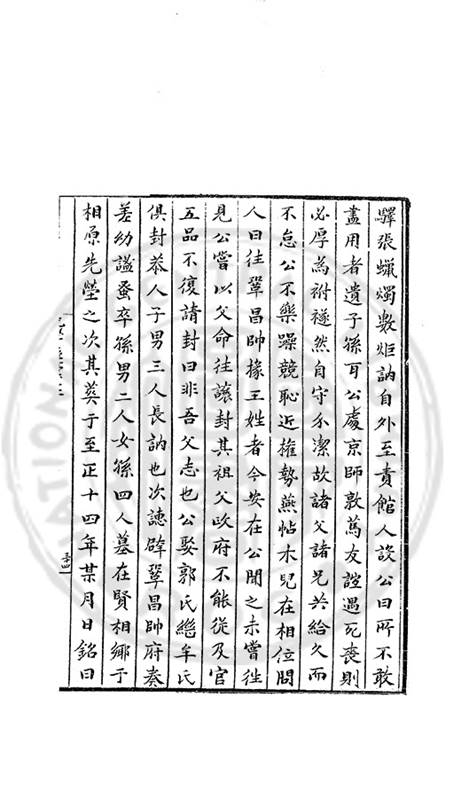 驛張蠟燭數炬訥自外至責館人設公曰所不敢
盡用者遺子孫耳公處京師敦篤友誼遇死喪則
必厚為祔襚然自守尒潔故諸父諸兄共給久而
不怠公不樂躁競恥近權勢燕帖木兒在相位問
人曰往鞏昌帥掾王姓者今安在公聞之未嘗往
見公嘗以父命往讓封其祖父政府不能從及官
五品不復請封曰非吾父志也公娶郭氏繼牟氏
俱封恭人子男三人長訥也次譓辟鞏昌帥府奏
差幼謐蚤卒孫男二人女孫四人墓在賢相鄉于
相原先塋之次其葬于至正十四年某月日銘曰